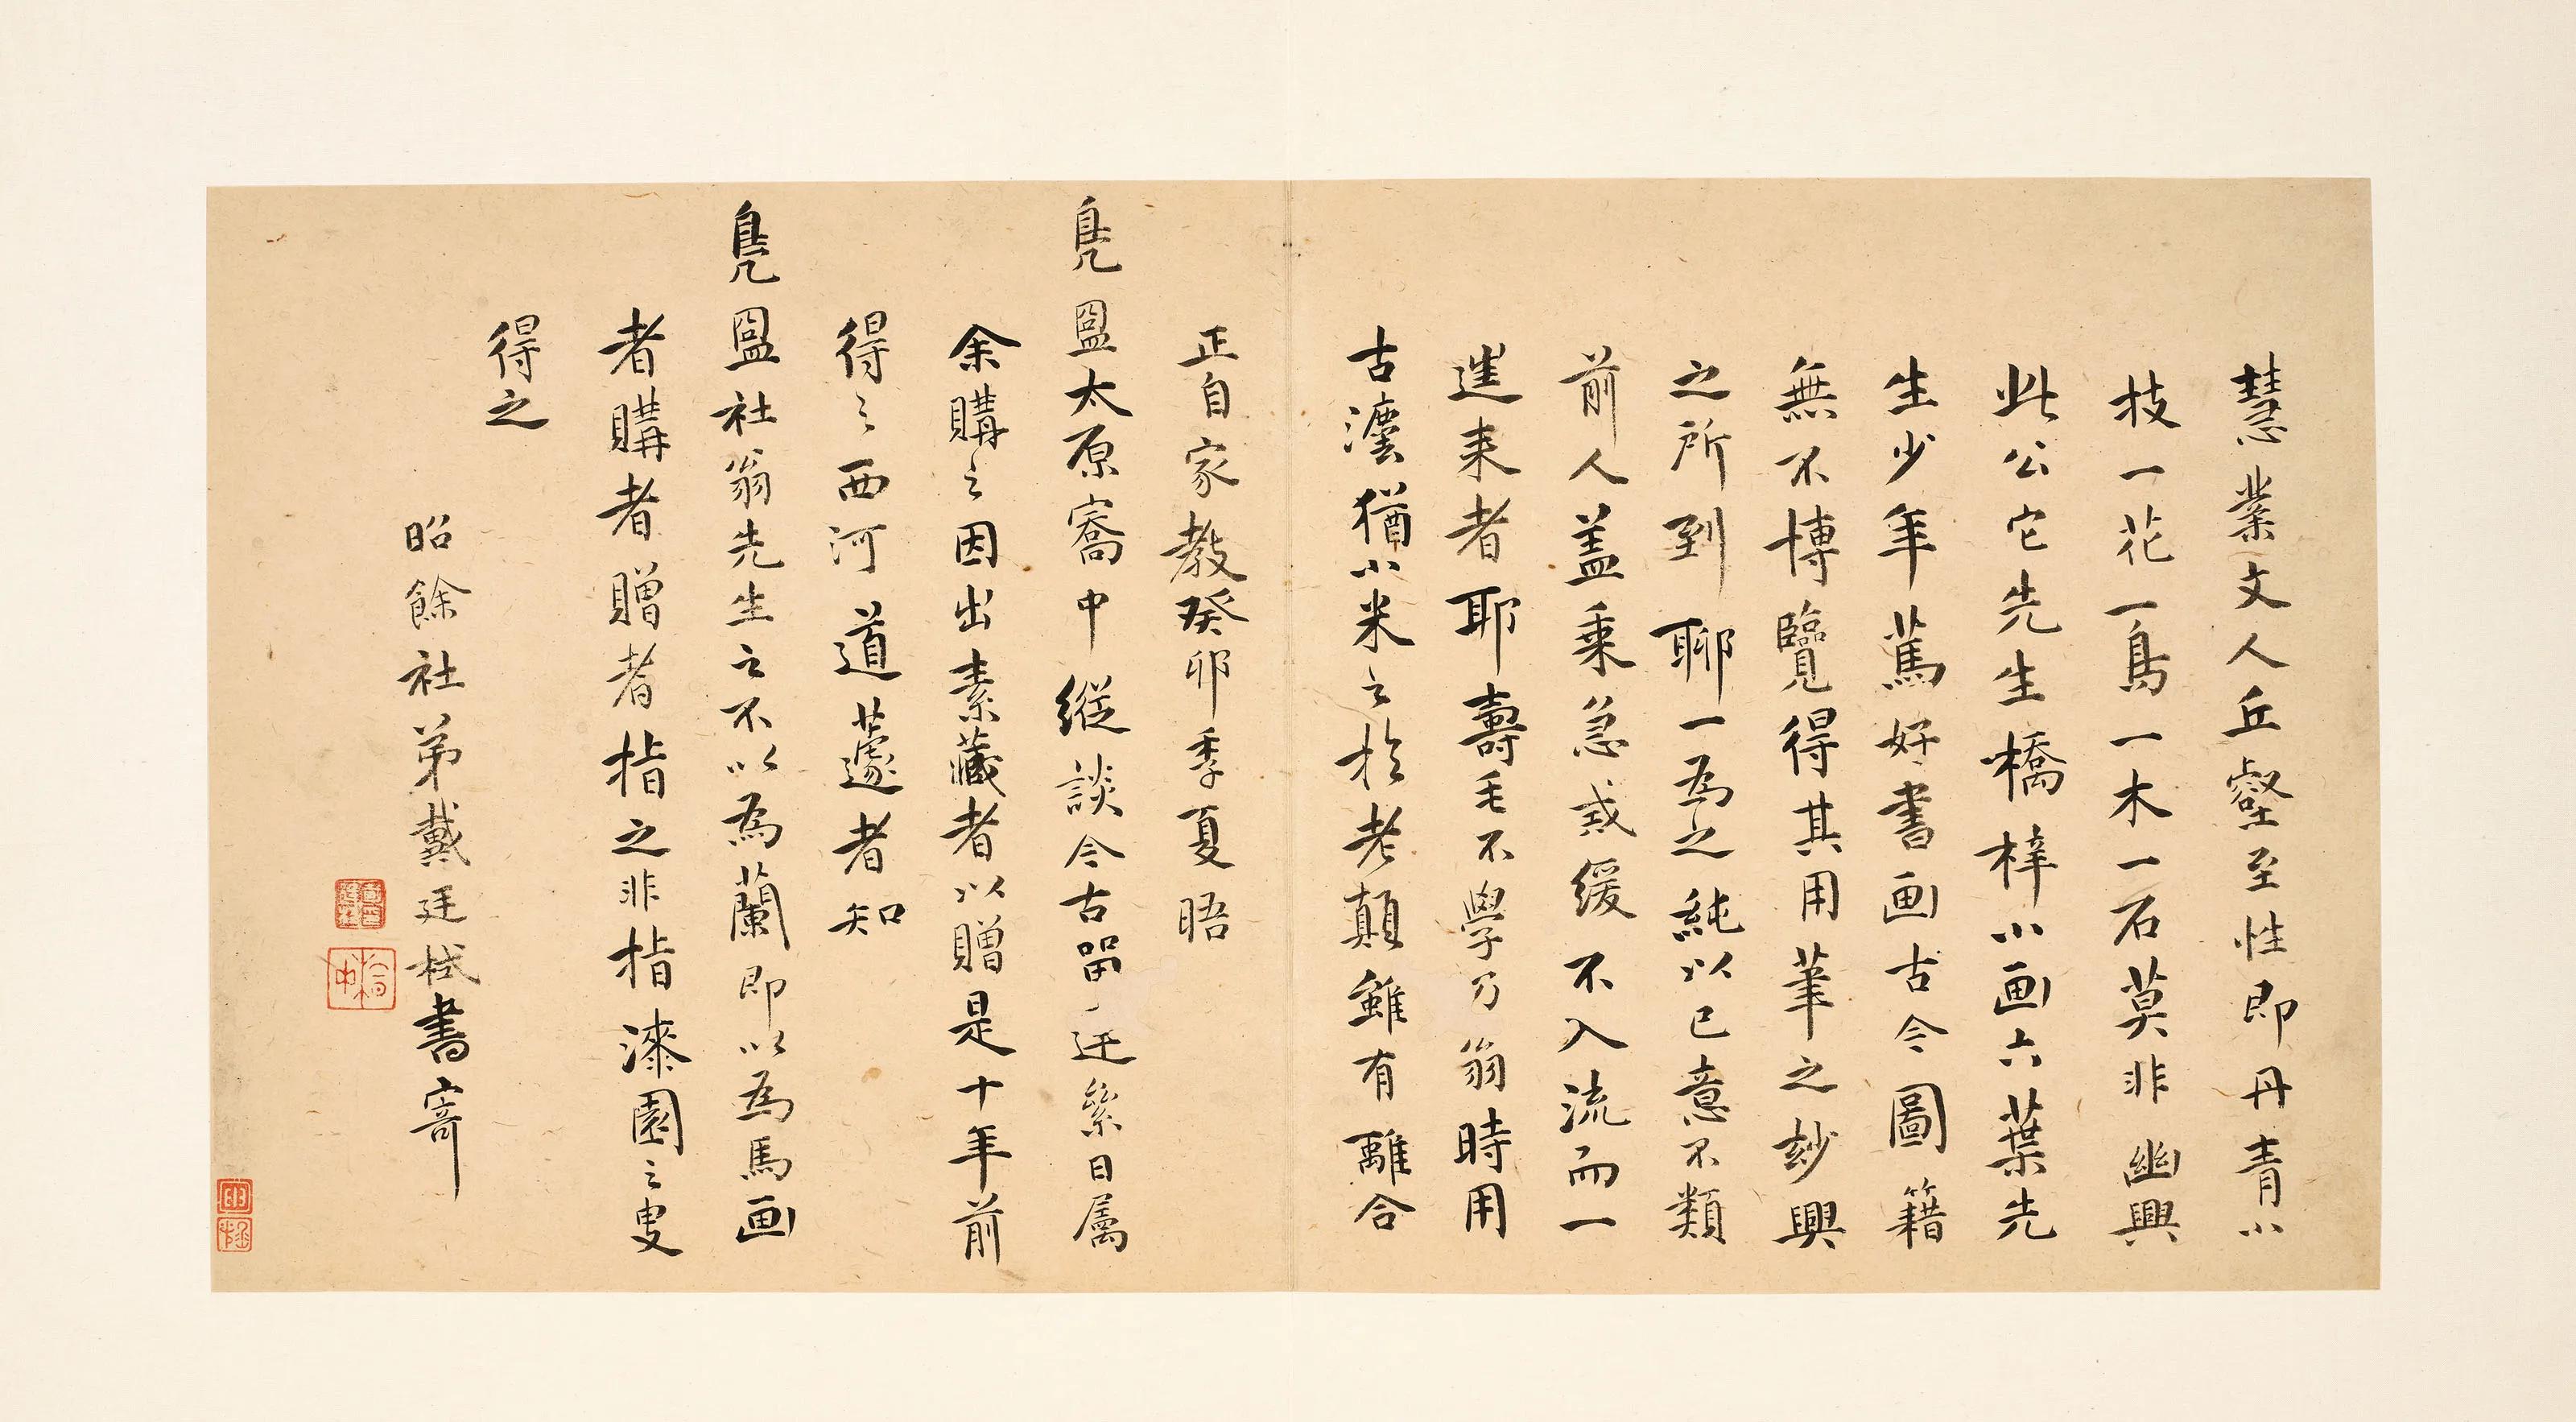 慧業文人丘壑至性即丹青小
技一花一鳥一木一石莫非幽興
此公它先生橋梓小画六葉先
生少年篤好書画古今圖籍
無不博覽得其用筆之玅興
之所到聊一為之純以己意不類
前人盖乘急或緩不入流而一
進耒者耶壽毛不學乃翁時用
古澐猶小米之於老顛雖有離合
正自家教癸卯季夏晤
鳧盟太原寓中縱談今古留連絫日屬
余購之因出素藏者以贈是十年前
得之西河道蘧者知
鳧盟社翁先生之不以為蘭即以為馬画
者購者贈者指之非指漆園之叟
得之
昭餘社弟戴廷栻書寄